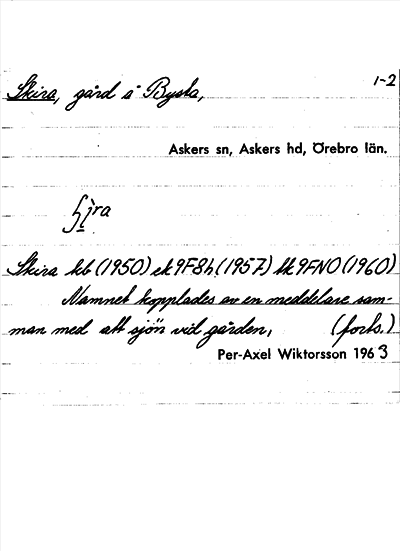 1-2
Skira, gård å Bysta,
Askers sn, Askers hd, Örebro län.
Skira kb (1950) ek 9F8h (1957) tk 9FNO (1960)
Namnet kopplades av en meddelare sam-
man med att sjön vid gården, (forts.)
Per-Axel Wiktorsson 1963